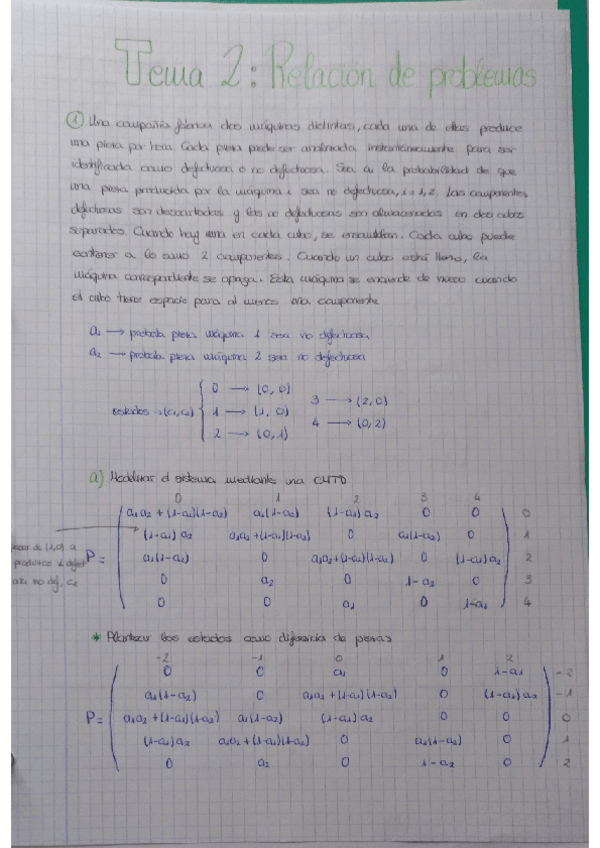 Tema 2: Relación de problemas
① Una compañía fabrica dos máquinas distintas, cada una de ellas produce
una pieza por hora. Cada pieza puede ser analizada instantáneamente para ser
identificada como defectuosa o no defectuosa. Sea ai la probabilidad de que
una pieza producida por la máquina i sea no defectuosa, i=1,2. Las componentes
defectuosas son descartadas y las no defectuosas son almacenadas en dos cubos
separados. Cuando hay una en cada cubo, se ensamblan. Cada cubo puede
contener a lo sumo 2 componentes. Cuando un cubo está lleno, la
máquina correspondiente se apaga. Esta máquina se enciende de nuevo cuando
el cubo tiene espacio para al menos una componente
a1 → probab. pieza máquina 1 sea no defectuosa
a2 → probab. pieza máquina 2 sea no defectuosa
0 → (0,0)
estados → 1 → (1,0)
2 → (0,1)
3 → (2,0)
4 → (0,2)
a) Modelizar el sistema mediante una CMTD
0 1 2 3 4
a1a2+(1-a1)(1-a2) a1(1-a2) (1-a1)a2 0 0 0
(1-a1)a2 a1a2+(1-a1)(1-a2) 0 a1(1-a2) 0 1
P = a1(1-a2) 0 a1a2+(1-a1)(1-a2) 0 (1-a1)a2 2
0 a2 0 1-a2 0 3
0 0 a1 0 1-a1 4
de (1,0) a
no def.
* Plantear los estados como diferencia de piezas
-2 -1 0 1 2
0 0 a1 0 1-a1 -2
a1(1-a2) 0 a1a2+(1-a1)(1-a2) 0 (1-a1)a2 -1
P = a1a2+(1-a1)(1-a2) a1(1-a2) (1-a1)a2 0 0 0
(1-a1)a2 a1a2+(1-a1)(1-a2) 0 a1(1-a2) 0 1
0 a2 0 1-a2 0 2